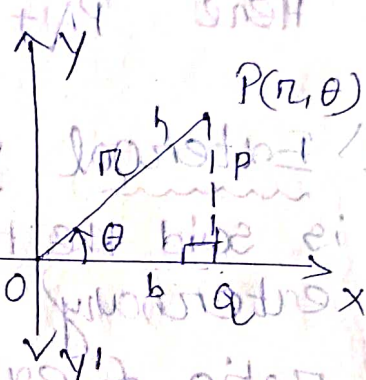 Y
P(r, θ)
h
r
P
θ
O
b
Q
X
Y'